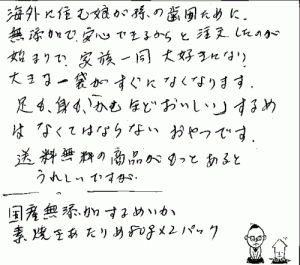 海外に住む娘が孫の歯固ために。
無添加で、安心できるからと注文したのが
始まりで、家族一同大好きになり
大きな一袋がすぐになくなります。
足も、身も、「かむほどおいしい」するめ
はなくてはならないおやつです。
送料無料の商品がもっとあると
うれしいですが
国産無添加するめいか
素焼きあたりめ80g×2パック